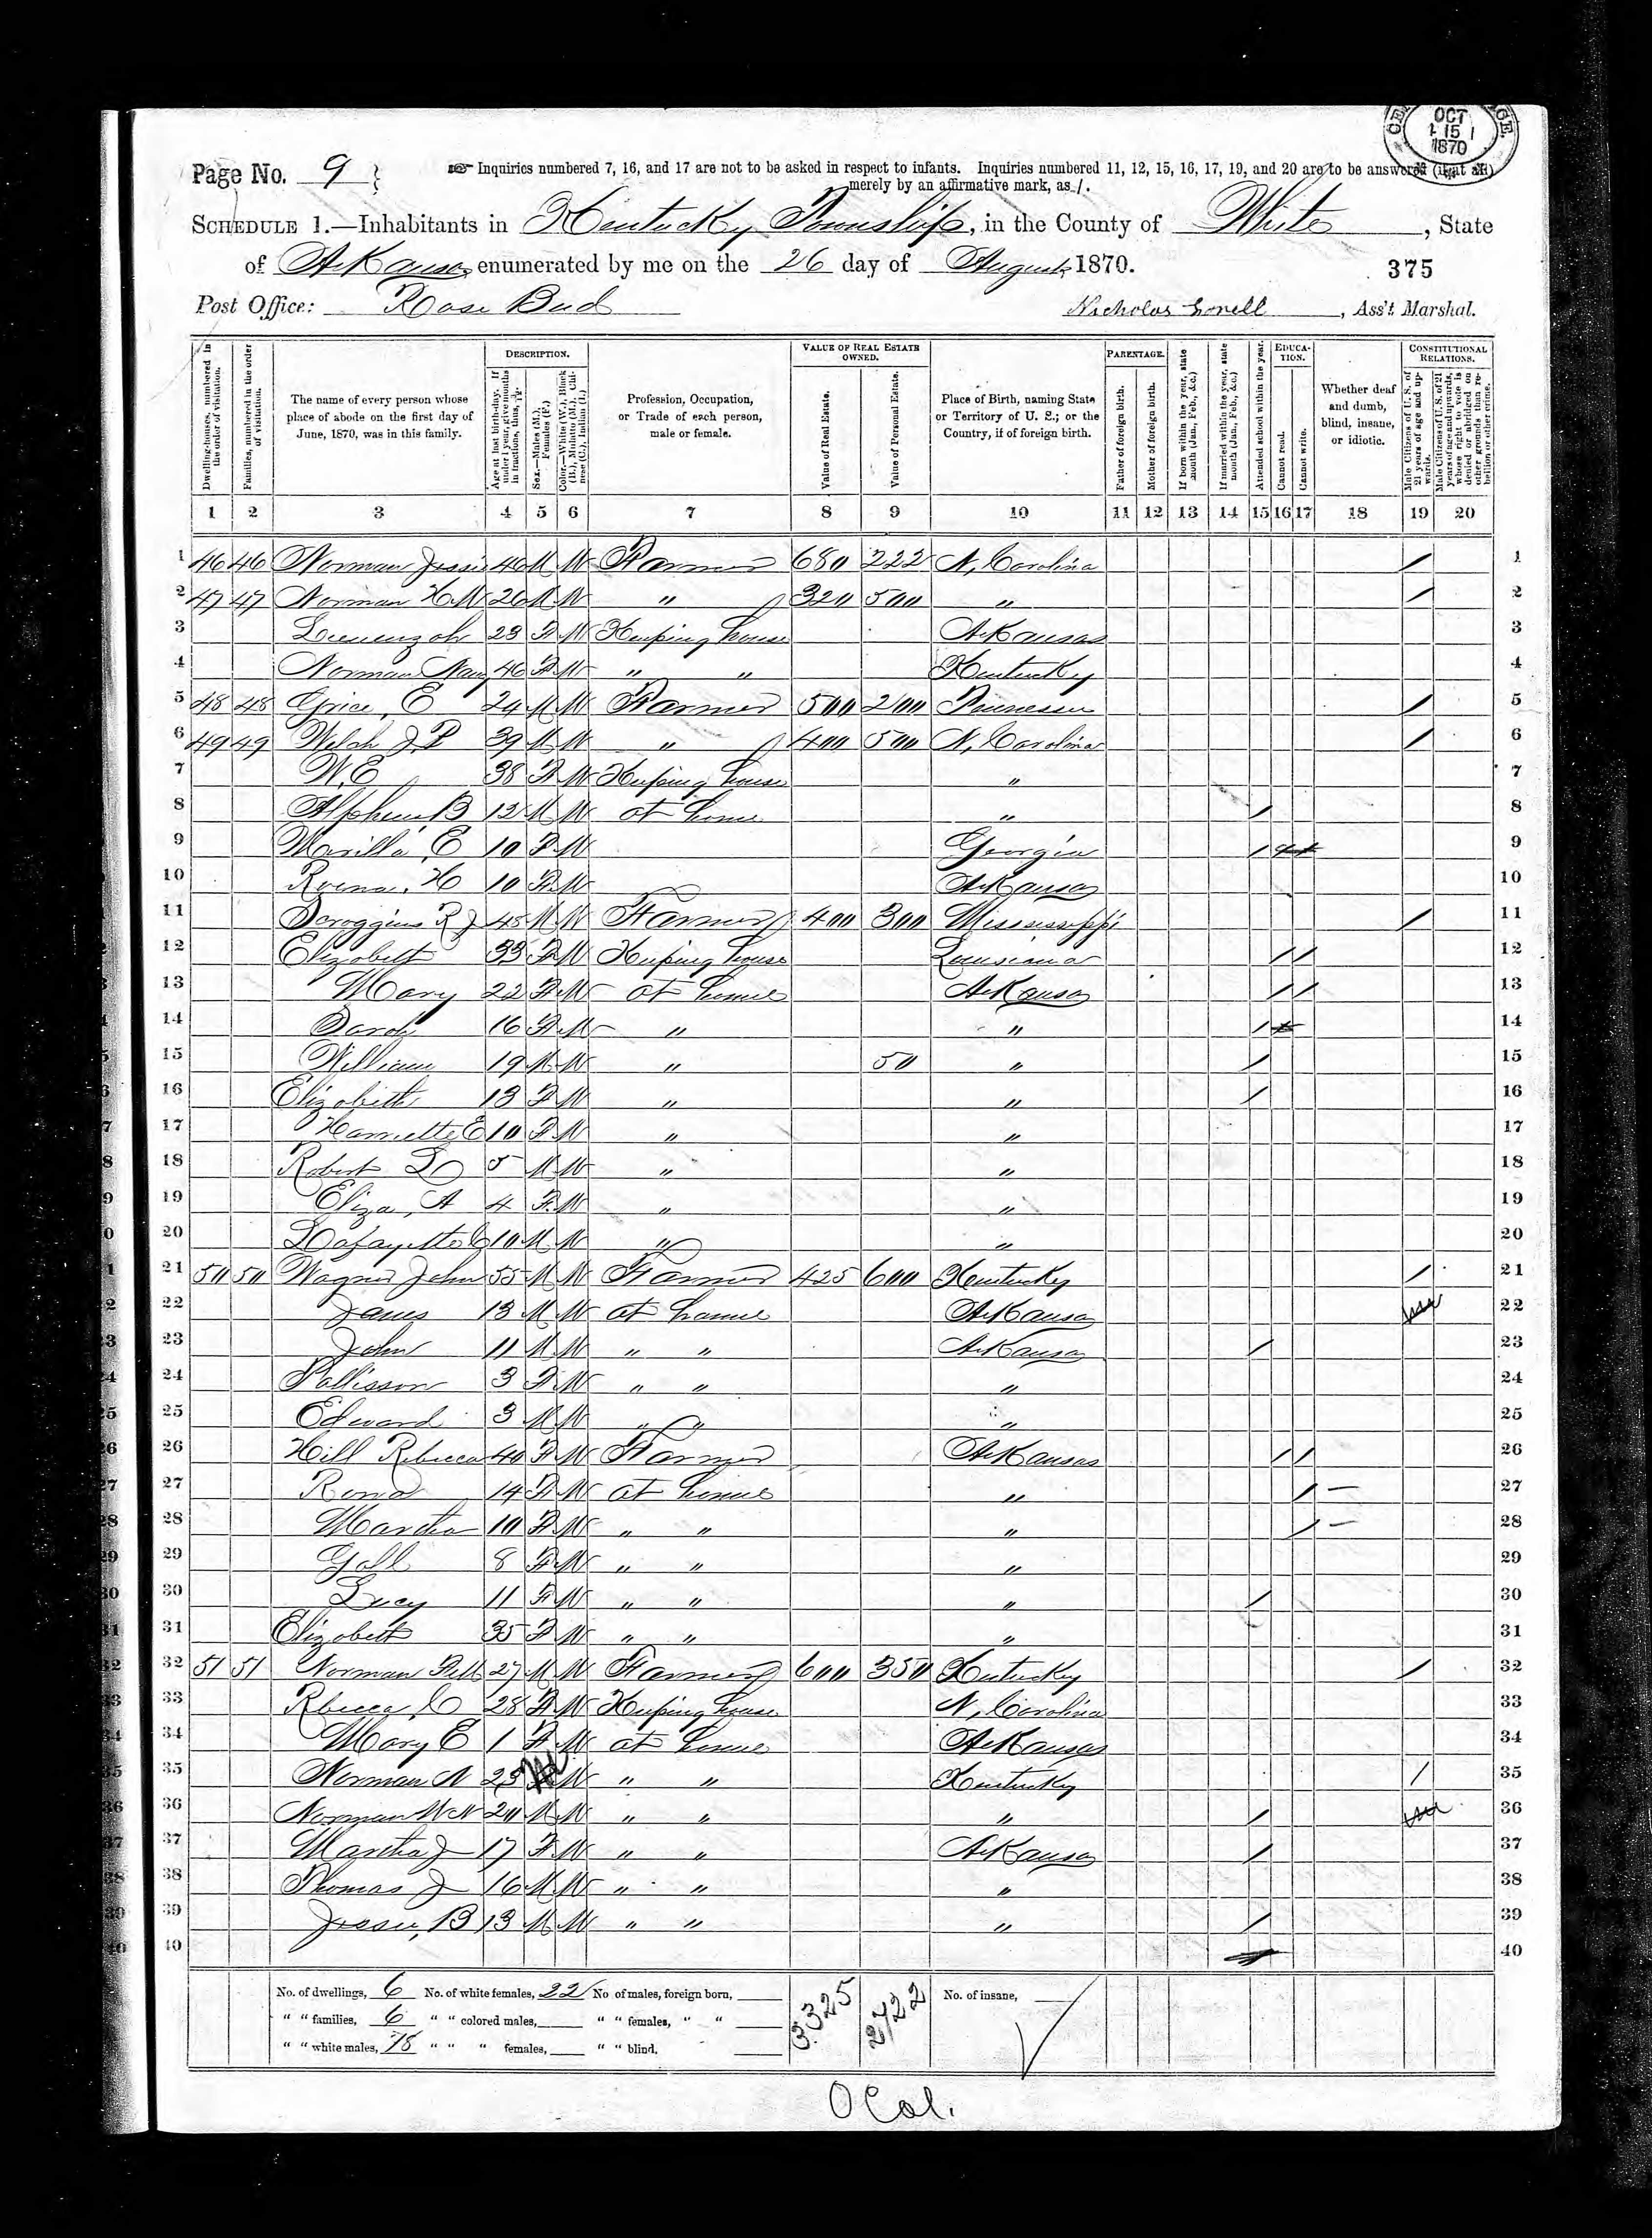 OCT
15
1870
Page No. 9
Inquiries numbered 7, 16, and 17 are not to be asked in respect to infants. Inquiries numbered 11, 12, 15, 16, 17, 19, and 20 are to be answered (if at all)
merely by an affirmative mark, as /.
SCHEDULE 1.—Inhabitants in Kentucky Township, in the County of White, State
of Arkansas, enumerated by me on the 26 day of August, 1870.
375
Post Office: Rose Bud
Nicholas, Ass't Marshal.
Dwelling-houses, numbered in the order of visitation.
Families, numbered in the order of visitation.
The name of every person whose place of abode on the first day of June, 1870, was in this family.
DESCRIPTION.
Age at last birth-day. If under 1 year, give months in fractions, thus, 3/12.
Sex.—Males (M.), Females (F.)
Color.—White (W.), Black (B.), Mulatto (M.), Chinese (C.), Indian (I.)
Profession, Occupation, or Trade of each person, male or female.
VALUE OF REAL ESTATE OWNED.
Value of Real Estate.
Value of Personal Estate.
Place of Birth, naming State or Territory of U. S.; or the Country, if of foreign birth.
PARENTAGE.
Father of foreign birth.
Mother of foreign birth.
If born within the year, state month (Jan., Feb., &c.)
If married within the year, state month (Jan., Feb., &c.)
Attended school within the year.
EDUCATION.
Cannot read.
Cannot write.
Whether deaf and dumb, blind, insane, or idiotic.
CONSTITUTIONAL RELATIONS.
Male Citizens of U. S. of 21 years of age and upwards.
Male Citizens of U. S. of 21 years of age and upwards, whose right to vote is denied or abridged on other grounds than rebellion or other crime.
1 2 3 4 5 6 7 8 9 10 11 12 13 14 15 16 17 18 19 20
1 46 46 Norman Jessie 46 M W Farmer 680 222 N, Carolina / 1
2 47 47 Norman H 26 M W " 320 500 " / 2
3 23 F W Keeping house Arkansas 3
4 Norman 46 F W " " Kentucky 4
5 48 48 Grice, E 24 M W Farmer 500 200 Tennessee / 5
6 49 49 Welch J P 39 M W " 400 500 N, Carolina / 6
7 W, E 38 F W Keeping house " 7
8 Alpheus B 12 M W at home " / 8
9 Marilla, E 10 F W Georgia / 9
10 Roena, H 10 F W Arkansas 10
11 Scroggins R J 45 M W Farmer 400 300 Mississippi / 11
12 Elizabeth 33 F W Keeping house Louisiana / / 12
13 Mary 22 F W at home Arkansas / / 13
14 Sarah 16 F W " " / 14
15 William 19 M W " 50 " / 15
16 Elizabeth 13 F W " " / 16
17 E 10 F W " " 17
18 Robert L 5 M W " " 18
19 Eliza, A 4 F W " " 19
20 Lafayette 10 M W " " 20
21 50 50 Wagner John 55 M W Farmer 425 600 Kentucky / 21
22 James 13 M W at home Arkansas 22
23 John 11 M W " " Arkansas / 23
24 3 F W " " " 24
25 Edward 3 M W " " " 25
26 Hill Rebecca 40 F W Farmer Arkansas / / 26
27 14 F W at home " / — 27
28 Martha 10 F W " " " / — 28
29 8 F W " " " 29
30 Lucy 11 F W " " " / 30
31 Elizabeth 35 F W " " " 31
32 51 51 Norman 27 M W Farmer 600 350 Kentucky / 32
33 Rbecca C 28 F W Keeping house N, Carolina 33
34 Mary E 1 F W at home Arkansas 34
35 Norman N 23 M W " " Kentucky / 35
36 Norman W N 20 M W " " " / 36
37 Martha J 17 F W " " Arkansas / 37
38 Thomas J 16 M W " " " 38
39 Jessie, B 13 M W " " " / 39
40 40
No. of dwellings, 6 No. of white females, 22 No of males, foreign born, 3325 2722 No. of insane,
" " families, 6 " " colored males, " " females, " "
" " white males, 18 " " " females, " " blind,
0 Col.